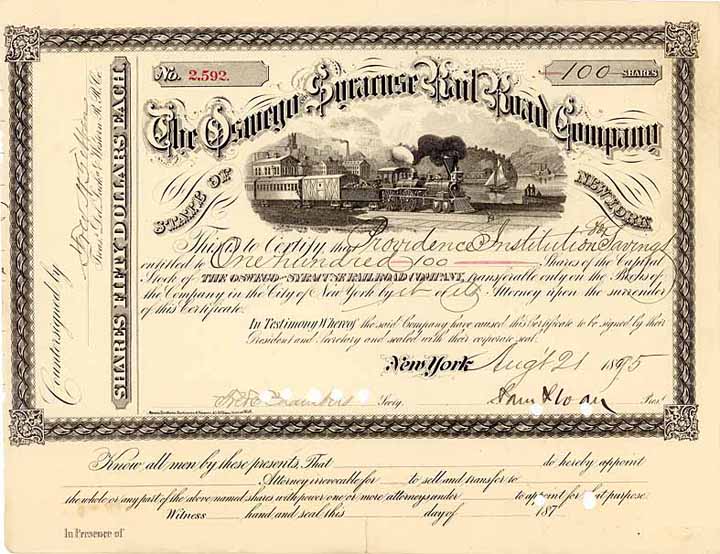 No. 2.592.
100 SHARES
The Oswego Syracuse Rail Road Company
STATE OF NEW YORK
This is to Certify that Providence Institution for Savings
entitled to One hundred 100 Shares of the Capital
Stock of THE OSWEGO AND SYRACUSE RAILROAD COMPANY, transferable only on the Books of
the Company in the City of New York by it or its Attorney upon the surrender
of this Certificate.
In Testimony Whereof the said Company have caused this Certificate to be signed by their
President and Secretary and sealed with their corporate seal.
New York Augt 21 1895
Secty.
Sam Sloan Prest
Countersigned by
SHARES FIFTY DOLLARS EACH.
Know all men by these presents, That do hereby appoint
Attorney irrevocable for to sell and transfer to
the whole or any part of the above named shares with power one or more attorneys under to appoint for that purpose.
Witness hand and seal this day of 187
In Presence of